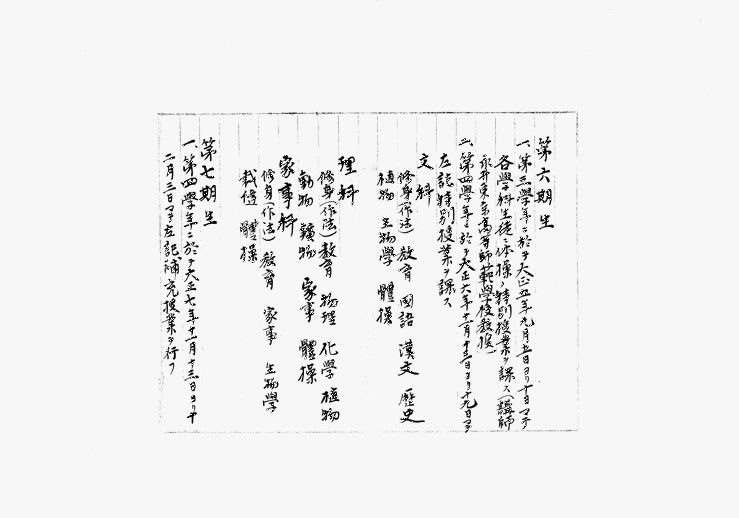 第六期生
一、第三學年ニ於テ大正五年九月五日ヨリ十日マデ
各學科生徒ニ体操ノ特別授業ヲ課ス(講師
永井東京高等師範學校教授)
二、第四學年ニ於テ大正六年十二月十三日ヨリ十九日マデ
左記特別授業ヲ課ス
文科
修身(作法) 教育 國語 漢文 歷史
植物 生物學 體操
理科
修身(作法) 教育 物理 化學 植物
動物 鑛物 家事 體操
家事科
修身(作法) 教育 家事 生物學
裁縫 體操
第七期生
一、第四學年ニ於テ大正七年十二月十三日ヨリ十
二月三日マデ左記補充授業ヲ行フ